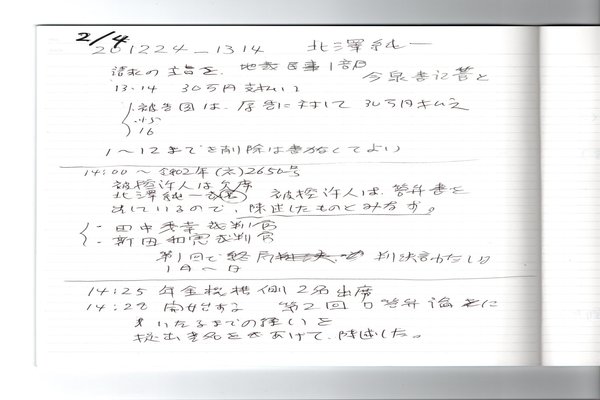 2/4
201224_1314 北澤純一
請求の主旨を、地裁民事1部 今泉書記官と
13.14 30万円支払い
被告国は、原告に対して30万円払え
15
16
1〜12までを削除は書始してよい
14:00〜 令和2年(ネ)2650号
被控訴人は欠席
北澤純一 被控訴人は、答弁書を
出しているので、陳述したものとみなす。
田中秀幸裁判官
新田和憲裁判官
第1回で終局 判決言わたし日
1月〜日
14:25 年金機構側2名出席
14:28 開始する 第2回口答弁論
いたるまでの経いを
提出書名をあげて、陳述した。